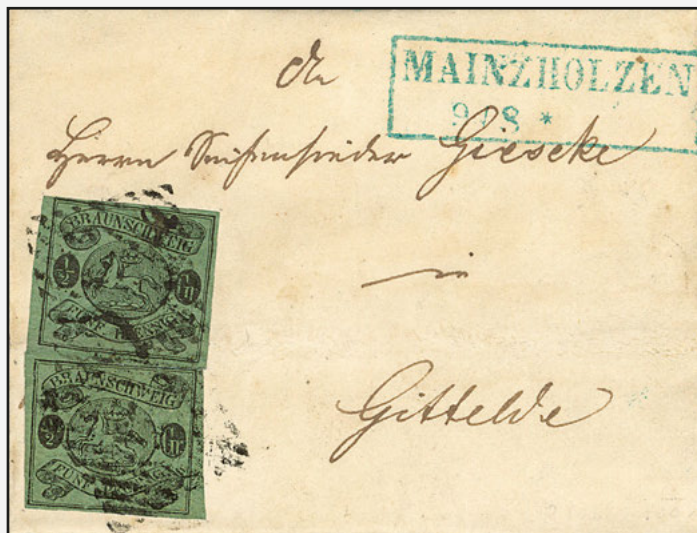 An
MAINZHOLZEN
9 / 8 *
Herrn Seifensieder Gieseke
in
Gittelde
BRAUNSCHWEIG
1/2
FÜNF PFENNIGE
BRAUNSCHWEIG
1/2
FÜNF PFENNIGE